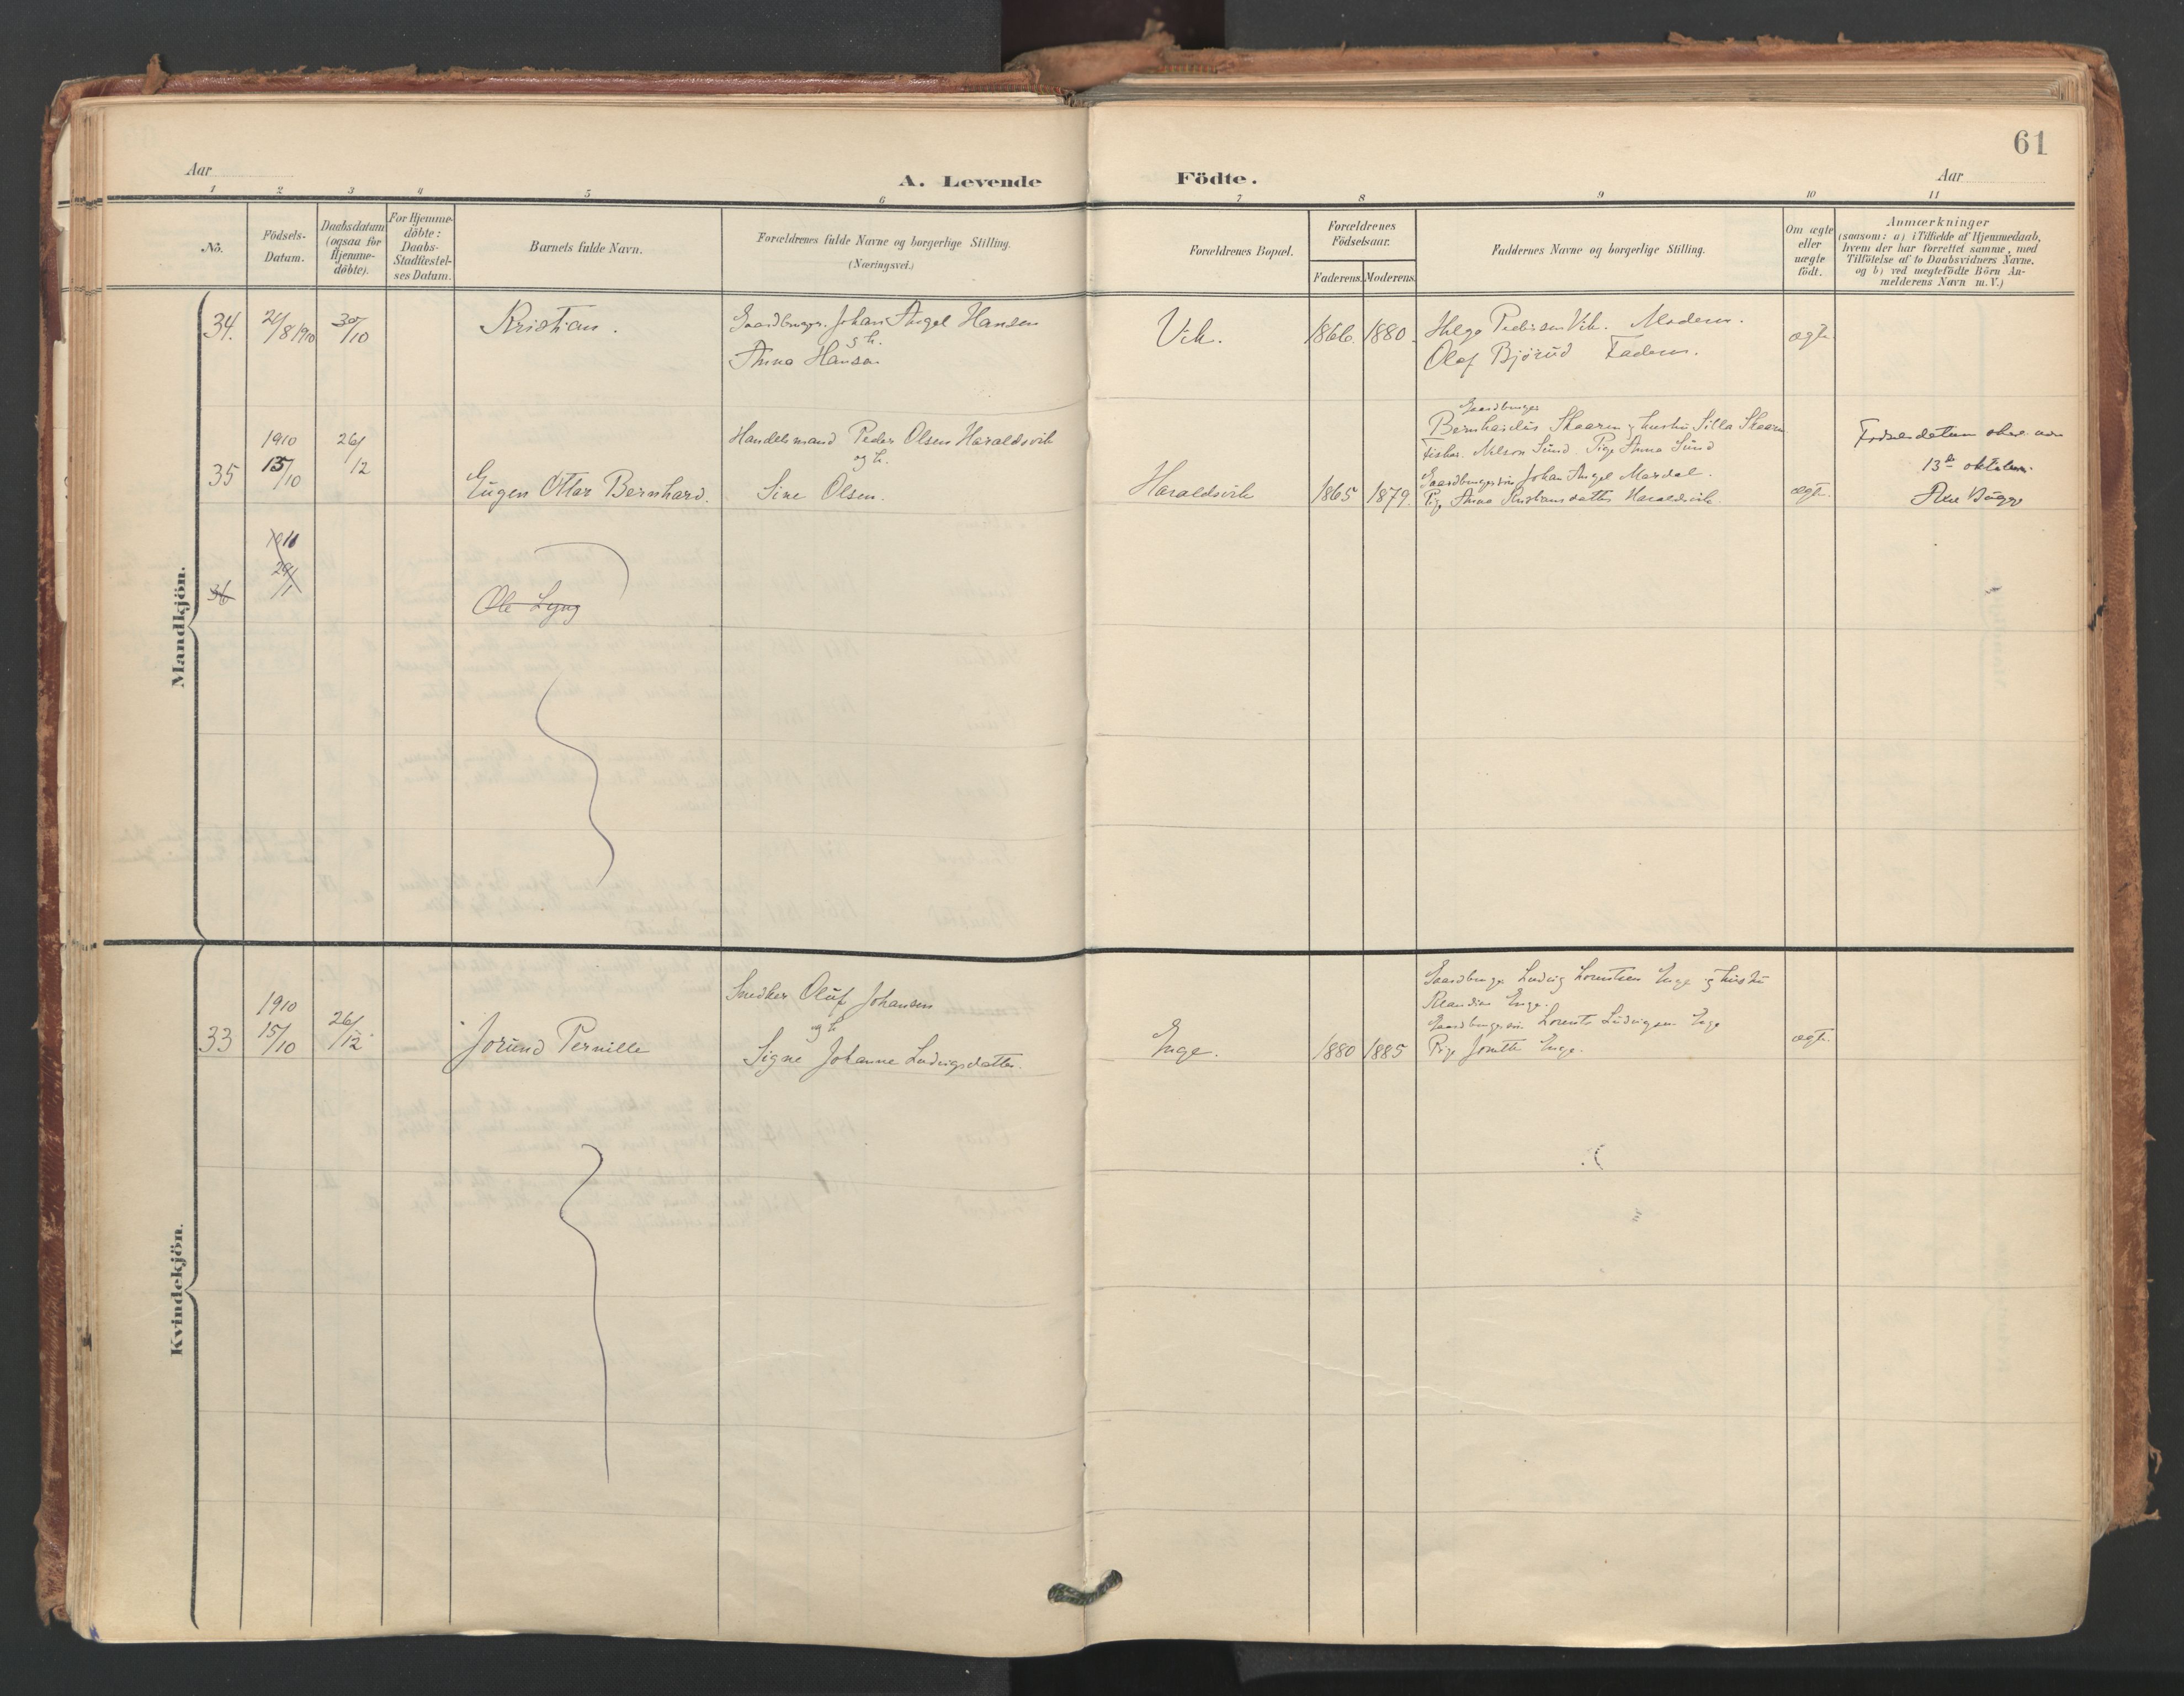 61
Aar
A. Levende Födte.
Aar
1 2 3 4 5 6 7 8 9 10 11
No.
Födsels-Datum.
Daabsdatum (ogsaa for Hjemme-döbte).
For Hjemme-döbte: Daabs-Stadfæstel-ses Datum.
Barnets fulde Navn.
Forældrenes fulde Navne og borgerlige Stilling.
(Næringsvei.)
Forældrenes Bopæl.
Forældrenes Födselsaar.
Faderens. Moderens.
Faddernes Navne og borgerlige Stilling.
Om ægte eller uægte födt.
Anmærkninger
(saasom: a) i Tilfælde af Hjemmedaab,
hvem der har forrettet samme, med
Tilföielse af to Daabsvidners Navne,
og b) ved uægtefödte Börn An-
melderens Navn m. V.)
Mandkjön.
34. 21/8 1910 30/10 Kristian.
Gaardbruger Johan Angel Hansen
g h.
Anna Hansen
Vik. 1866. 1880.
Helge Pedersen Vik. Moderen.
Olaf Bjørud Faderen.
ægte
35 1910 13/10 26/12 Eugen Ottar Bernhard.
Handelsmand Peder Olsen Haraldsvik
og h.
Sine Olsen.
Haraldsvik 1865 1879.
Gaardbruger
Bernhardus Skaaren g hustru Silla Skaaren
Fisker. Nilson Sund. Pige Anna Sund
Gaardbrugersøn Johan Angel Mardal.
Pige Anna Kristiansdatter Haraldsvik
ægte.
Fødselsdatum skal være
13de oktober.
36 1911 29/1 Ole Lyng
Kvindekjön.
33 1910 15/10 26/12 Jorund Pernille
Snedker Oluf Johansen
og h
Signe Johanne Ludvigsdatter.
Enge. 1880 1885
Gaardbruger Ludvig Lorentsen Enge og hustru
Enge.
Gaardbrugersøn Lorents Ludvigsen Enge
Pige Enge.
ægte.